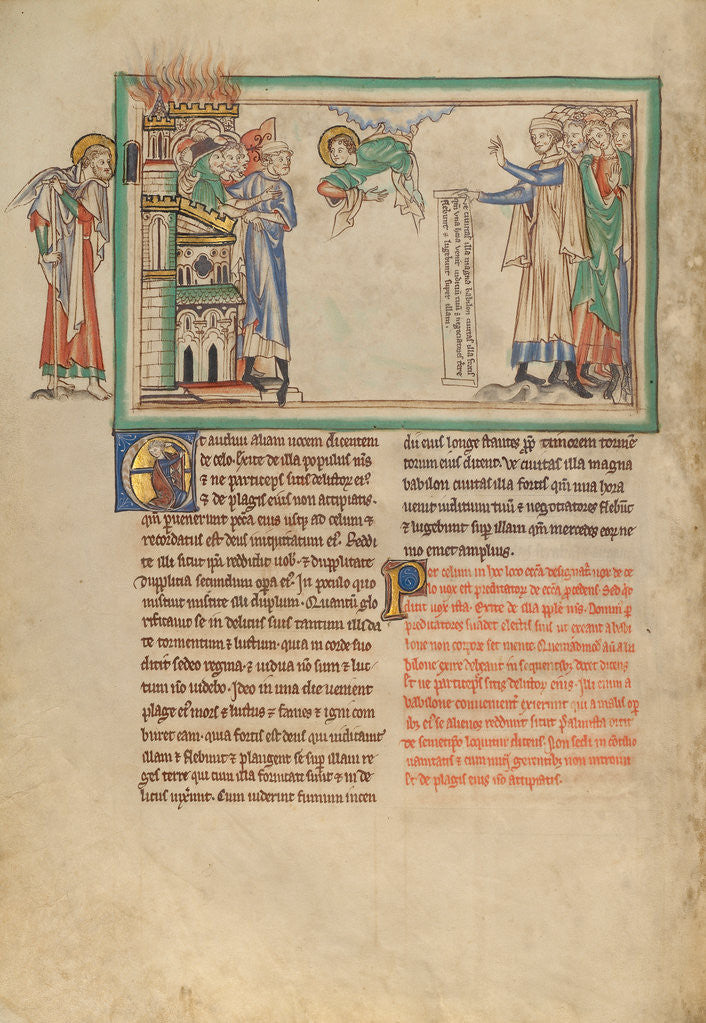 Ve ciuitas illa magna babilon ciuitas illa fortis
qm̄ una hora uenit iudiciū tuū & negociatores terre
flebunt & lugebunt super illam.
Et audiui aliam uocem dicentem
de celo. Exite de illa populus m̄s
& ne participes sitis delictor̄ ei᷒
& de plagis eius non accipiatis.
qm̄ peruenerunt pc̄c̄a eius usq; ad celum &
recordatus est deus iniquitatum ei᷒. Reddi
te illi sicut ip̄a reddidit uob̄. & dupplicate
dupplicia secundum oꝑa ei᷒. In poculo quo
miscuit miscite illi duplum. Quantū glo
rificauit se in deliciis fuit tantum illi da
te tormentum & luctum. quia in corde suo
dicit sedeo regina. & uidua nō sum & luc
tum nō uidebo. Ideo in una die uenient
plage ei᷒ mors & luctus & fames & igni com
buret̄ eam. quia fortis est deus qui iudicauit
illam & flebunt & plangent se suꝑ illam re
ges terre qui cum illa fornicati sunt & in de
liciis uixerunt. Cum uiderint fumum incen
dii eius longe stantes ꝓpt̄ timorem tormen
torum eius dicent. Ve ciuitas illa magna
babilon ciuitas illa fortis qm̄ una hora
uenit iudicium tuū & negociatores flebūt
& lugebunt suꝑ illam qm̄ merces eor̄ ne
mo emet amplius.
Per celum in hoc loco ecc̄a designat᷒ uox de ce
lo uox est predicator̄ de ecc̄a ꝓcedens. Sed q̄
dicit uox ista. Exite de illa pple m̄s. Dominus ꝑ
predicatores suadet electis suis ut exeant a babi
lone non corpore set mente. Quemadmodū aū a ba
bilone exire debeant in sequentibꝫ docet dicens
Et ne participes sitis delictor̄ eius. Illi enim a
babilone conuenient᷒ exierunt qui a malis oꝑ
ibꝫ ei᷒ se alienos reddunt sicut psalmista
de semetip̄o loquitur dicens. Non sedi in cōcilio
uanitatis & cum iniqua gerentibꝫ non introibo
Et de plagis eius nō accipiatis.